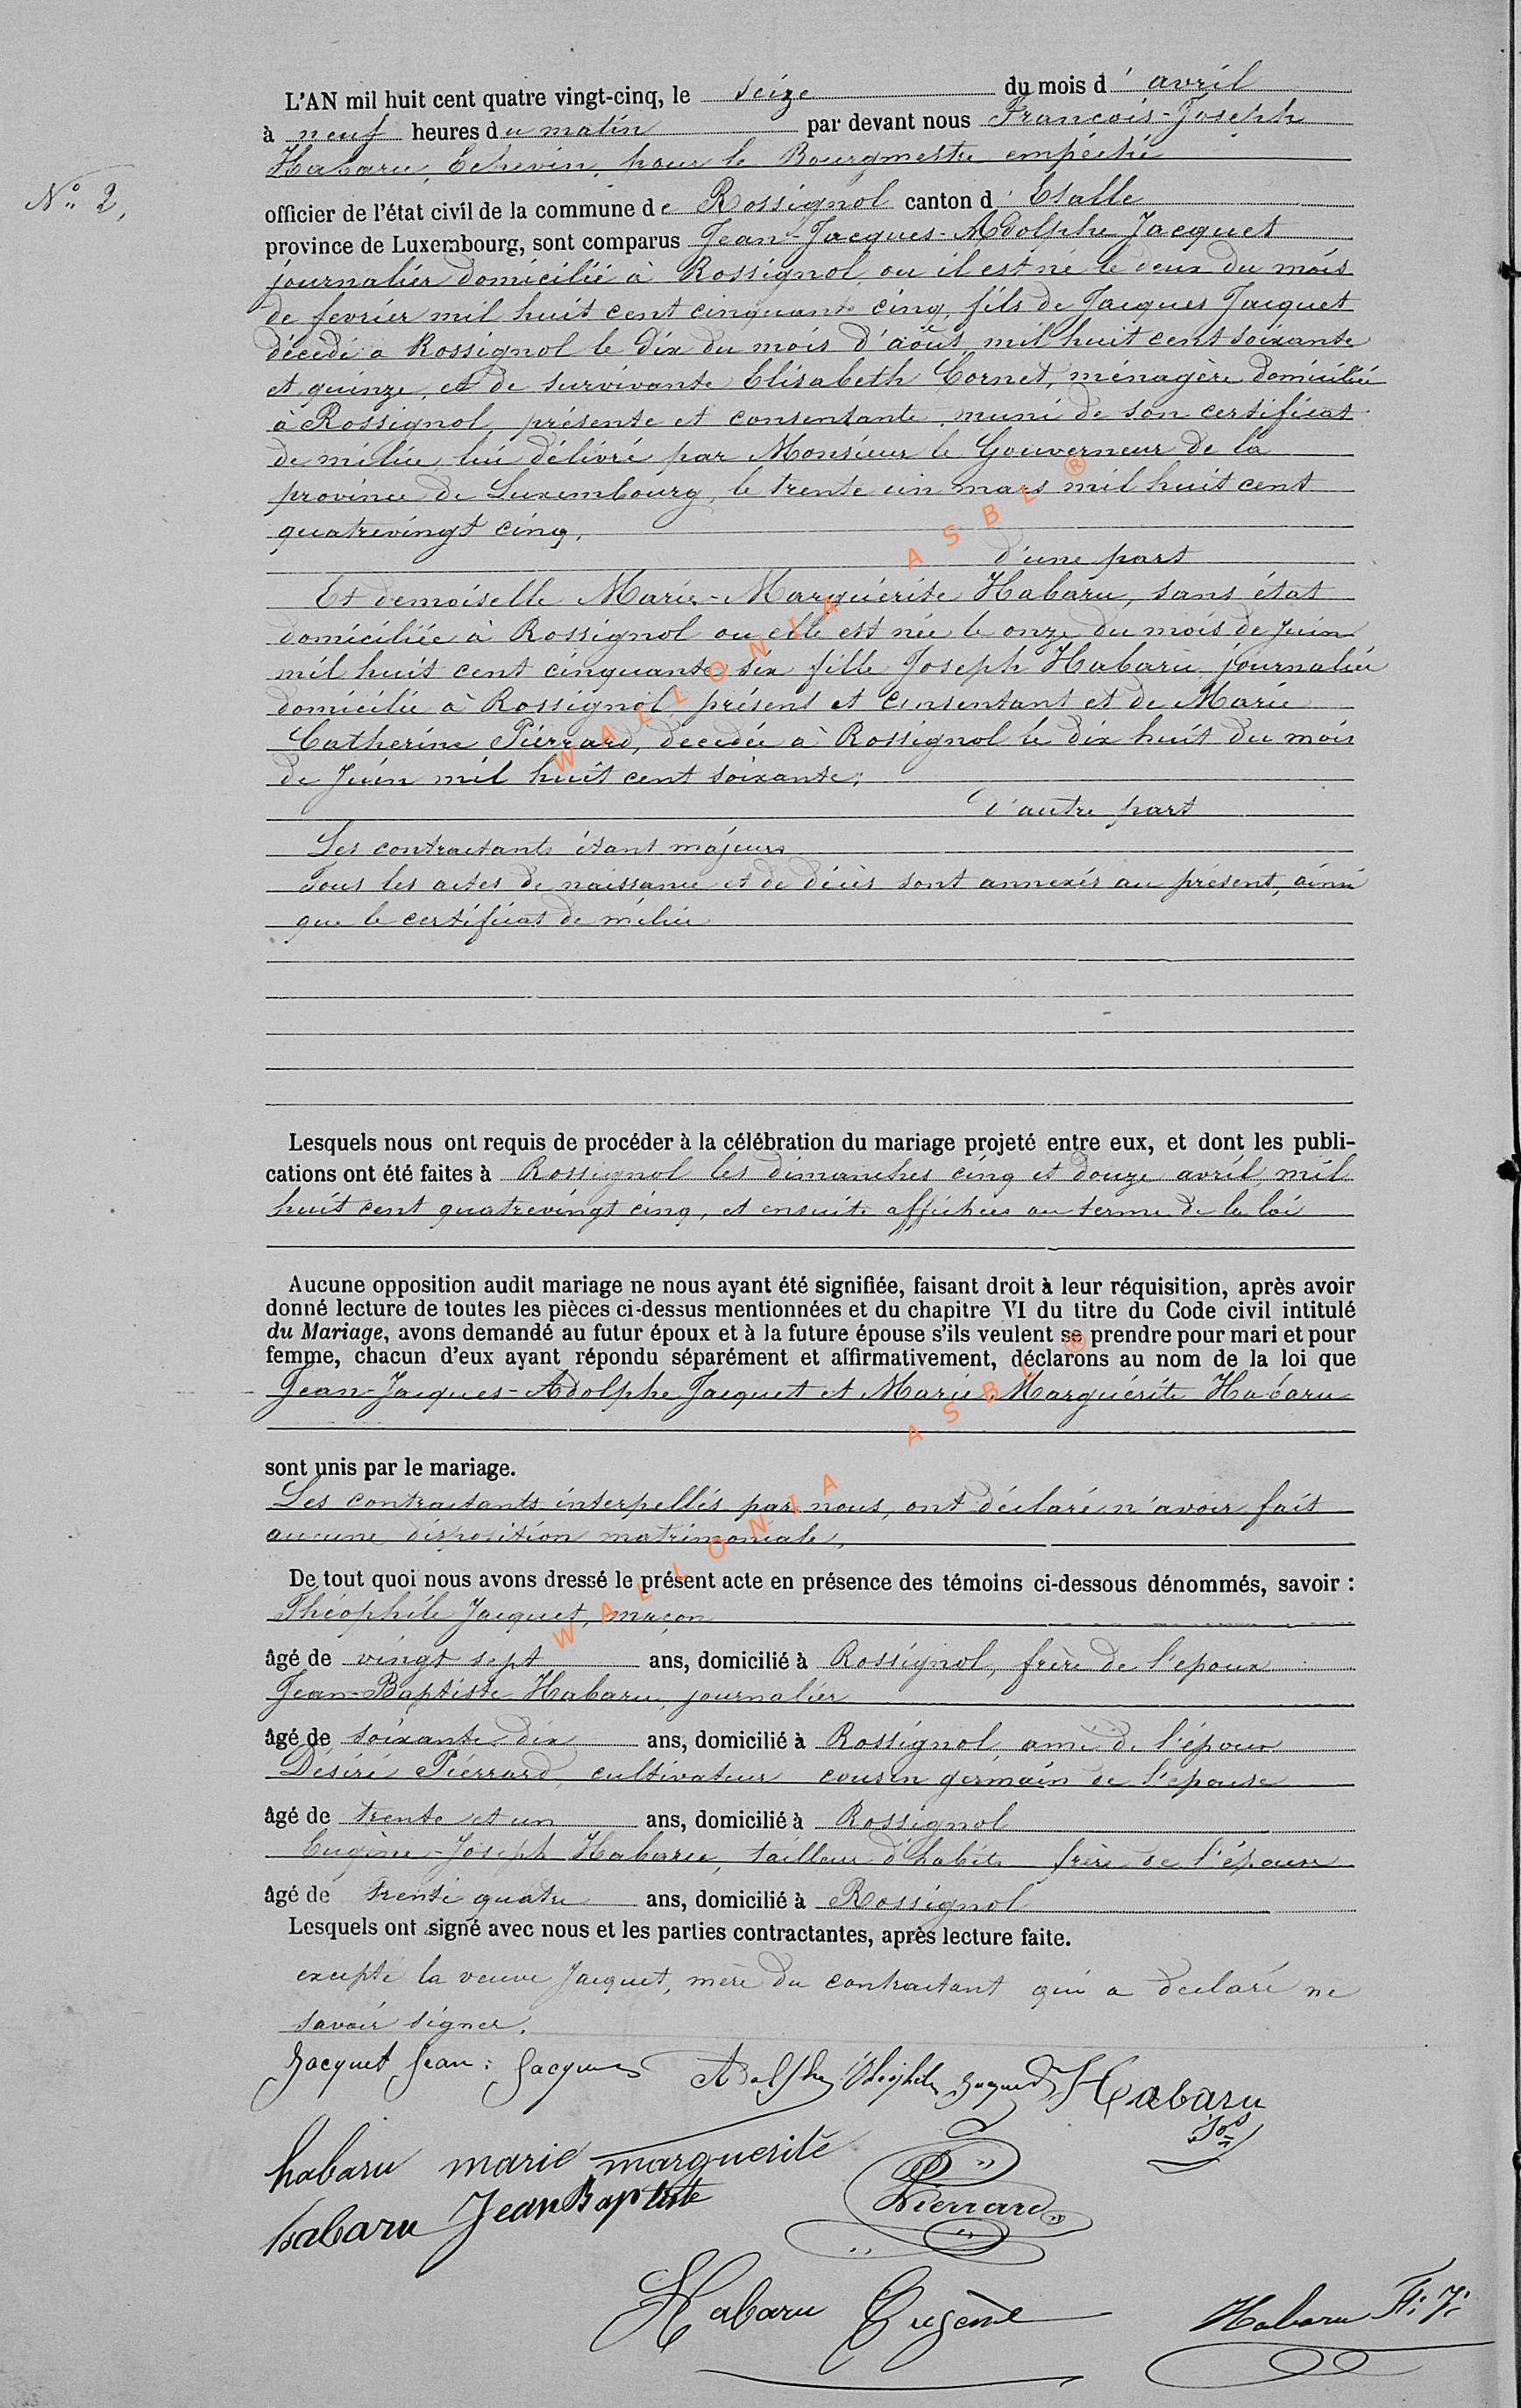 L'AN mil huit cent quatre vingt-cinq, le seize du mois d'avril
à neuf heures du matin par devant nous François-Joseph
Habaru, Echevin, pour le Bourgmestre empêché
N° 2,
officier de l'état civil de la commune de Rossignol canton d'Etalle
province de Luxembourg, sont comparus Jean-Jacques-Adolphe Jacquet
journalier domicilié à Rossignol, ou il est né le deux du mois
de fevrier mil huit cent cinquante cinq, fils de Jacques Jacquet
décédé a Rossignol le dix du mois d'août mil huit cent soixante
et quinze, et de survivante Elisabeth Cornet, ménagère domiciliée
à Rossignol, présente et consentante, muni de son certificat
de milice lui délivré par Monsieur le Gouverneur de la
province de Luxembourg, le trente un mars mil huit cent
quatrevingt cinq,
d'une part
Et demoiselle Marie-Marguérite Habaru, sans état
domiciliée à Rossignol ou elle est née le onze du mois de Juin
mil huit cent cinquante six fille Joseph Habaru journalier
domicilié à Rossignol présent et consentant et de Marie
Catherine Piérrard, decedée à Rossignol le dix huit du mois
de Juin mil huit cent soixante;
d'autre part
Les contractants étant majeurs
Tous les actes de naissance et de décès sont annexés au présent, ainsi
que le certificat de milice
Lesquels nous ont requis de procéder à la célébration du mariage projeté entre eux, et dont les publi-
cations ont été faites à Rossignol les dimanches cinq et douze avril mil
huit cent quatrevingt cinq, et ensuite affichées au terme de la loi
Aucune opposition audit mariage ne nous ayant été signifiée, faisant droit à leur réquisition, après avoir
donné lecture de toutes les pièces ci-dessus mentionnées et du chapitre VI du titre du Code civil intitulé
du Mariage, avons demandé au futur époux et à la future épouse s'ils veulent se prendre pour mari et pour
femme, chacun d'eux ayant répondu séparément et affirmativement, déclarons au nom de la loi que
Jean-Jacques-Adolphe Jacquet et Marie-Marguérite Habaru
sont unis par le mariage.
Les contractants interpellés par nous, ont déclaré n'avoir fait
aucune disposition matrimoniale,
De tout quoi nous avons dressé le présent acte en présence des témoins ci-dessous dénommés, savoir :
Théophile Jacquet, maçon
âgé de vingt sept ans, domicilié à Rossignol, frère de l'epoux
Jean-Baptiste Habaru, journalier
âgé de soixante dix ans, domicilié à Rossignol, ami de l'époux
Désiré Piérrard, cultivateur cousin germain de l'epouse
âgé de trente et un ans, domicilié à Rossignol
Eugène-Joseph Habaru, tailleur d'habits frère de l'épouse
âgé de trente quatre ans, domicilié à Rossignol
Lesquels ont signé avec nous et les parties contractantes, après lecture faite.
excepté la veuve Jacquet, mère du contractant qui a declaré ne
savoir signer.
Jacquet Jean: Jacques Adolphe Théophile Jacquet Habaru Jos
habaru marie marguerite D Pierrard
habaru Jean Baptiste
Habaru Eugène Habaru F: J:
WALLONIA ASBL ®
WALLONIA ASBL ®